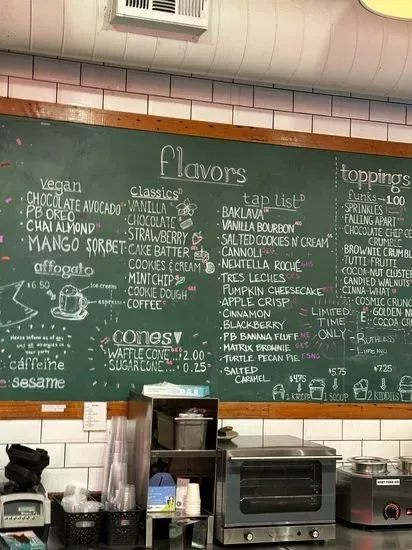 flavors
vegan
CHOCOLATE AVOCADO
PB OREO
CHAI ALMOND
MANGO SORBET
affogato
$6.50
ice cream
espresso
Please inform us of any
caffeine
sesame
classics
VANILLA
CHOCOLATE
STRAWBERRY
CAKE BATTER
COOKIES & CREAM
MINT CHIP
COOKIE DOUGH
COFFEE
cones
WAFFLE CONE 2.00
SUGAR CONE 0.25
tap list
BAKLAVA
VANILLA BOURBON
SALTED COOKIES N' CREAM
CANNOLI
NEWTELLA ROCHÉ
TRES LECHES
PUMPKIN CHEESECAKE
APPLE CRISP
CINNAMON
BLACKBERRY
PB BANANA FLUFF
MATRIX BROWNIE
TURTLE PECAN PIE
SALTED
CARAMEL
LIMITED
TIME
ONLY
$4.75
2 KIDDIES
$5.75
1 SCOOP
$7.25
2 KIDDIES
toppings
FUNKS - 1.00
SPRINKLES
FALLING APART
CHOCOLATE CHIP CO
CRUMBLE
BROWNIE CRUMBL
TUTTI FRUTTI
COCOA-NUT CLUSTER
CANDIED WALNUTS
CINNA-WHAT
COSMIC CRUNC
GOLDEN-NU
COCOA CO